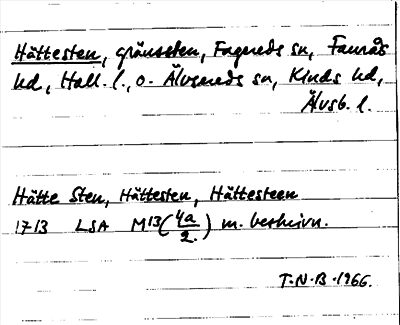 Hättesten, gränssten, Fagereds sn, Faurås
hd, Hall. l., o. Älvsereds sn, Kinds hd,
Älvsb. l.
Hätte Sten, Hättesten, Hättesteen
1713 LSA M13(4a/2) m. beskrivn.
T.N.B. 1966.